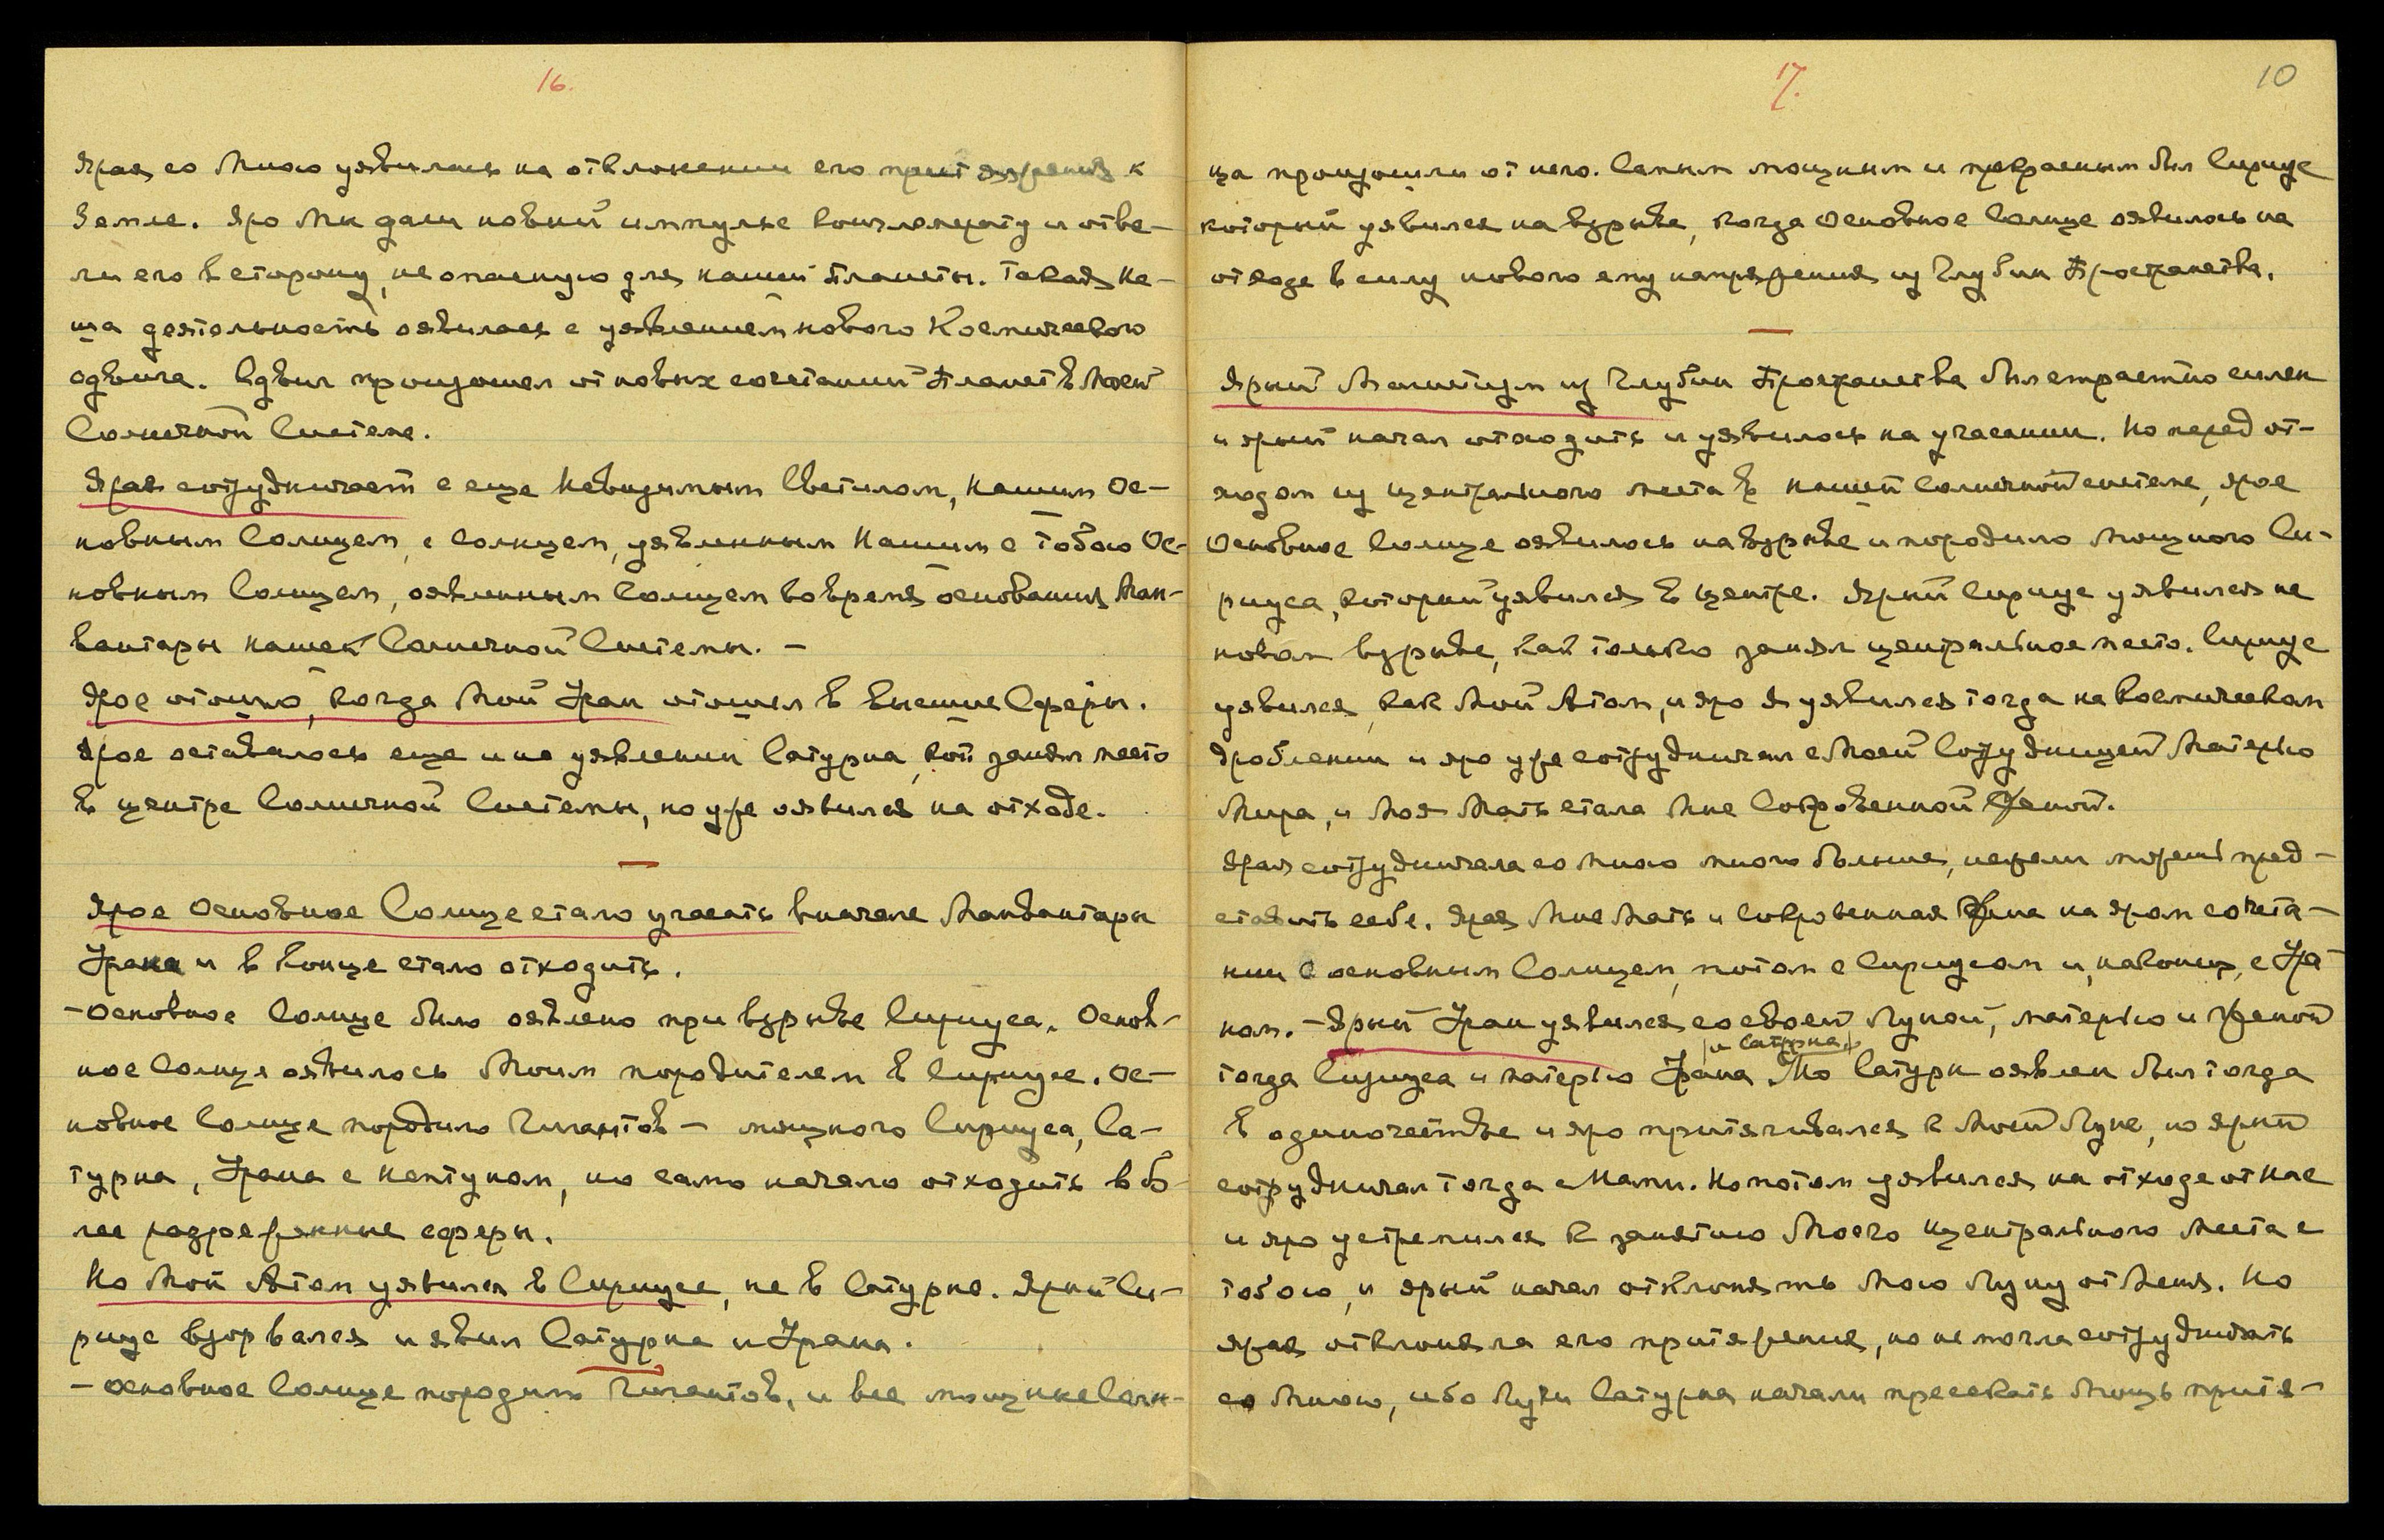 16.
Ярая со Мною уявилась на отклонении его притяжения к
Земле. Яро Мы дали новый импульс конгломерату и отве-
ли его в сторону, не опасную для нашей Планеты. Такая На-
ша деятельность оявилась с уявлением нового Космического
сдвига. Сдвиг произошел от новых сочетаний Планет в Моей
Солнечной Системе.
Ярая сотрудничает с еще Невидимым Светилом, Нашим Ос-
новным Солнцем, с Солнцем, уявленным Нашим с Тобою Ос-
новным Солнцем, оявленным Солнцем во время основания Ман-
вантары нашей Солнечной Системы. –
Ярое отошло, когда Мой Уран отошел в Высшие Сферы.
Ярое оставалось еще и на уявлении Сатурна, кот занял место
в центре Солнечной Системы, но уже оявился на отходе.
Ярое Основное Солнце стало угасать вначале Манвантары
Урана и в конце стало отходить.
– Основное Солнце было оявлено при взрыве Сириуса. Основ-
ное Солнце оявилось Моим породителем в Сириусе. Ос-
новное Солнце породило Гигантов – мощного Сириуса, Са-
турна, Урана с Нептуном, но само начало отходить в бо-
лее разреженные сферы.
Но Мой Атом уявился в Сириусе, не в Сатурне. Ярый Си-
риус взорвался и явил Сатурна и Урана.
– Основное Солнце породило Гигантов, и все мощные Солн-
17.
10
ца произошли от него. Самым мощным и прекрасным был Сириус
который уявился на взрыве, когда Основное Солнце оявилось на
отходе в силу нового ему напряжения из Глубин Пространства.
Ярый Магнетизм из Глубин Пространства был страстно силен
и ярый начал отходить и уявилось на угасании. Но перед от-
ходом из центрального места в нашей Солнечной системе, ярое
Основное Солнце оявилось на взрыве и породило мощного Си-
риуса, который уявился в центре. Ярый Сириус уявился на
новом взрыве, как только занял центральное место. Сириус
уявился, как Мой Атом, и яро Я уявился тогда на Космическом
дроблении и яро уже сотрудничал с Моей Сотрудницей Матерью
Мира, и Моя Мать стала Мне Сокровенной Женой.
Ярая сотрудничала со Мною много больше, нежели можешь пред-
ставить себе. Ярая Мне Мать и Сокровенная Жена на яром сочета-
нии с основным Солнцем, потом с Сириусом и, наконец, с Ура-
ном. – Ярый Уран уявился со своей Луной, матерью и Женой
и Сатурна
тогда Сириуса и матерью Урана. Но Сатурн оявлен был тогда
в одиночестве и яро притягивался к Моей Луне, но ярый
сотрудничал тогда с Нами. Но потом уявился на отходе от Нас
и яро устремился к занятию Моего центрального места с
Тобою, и ярый начал отклонять Мою Луну от Меня. Но
ярая отклоняла его притяжения, но не могла сотрудничать
со Мною, ибо Лучи Сатурна начали пресекать Мощь притя-